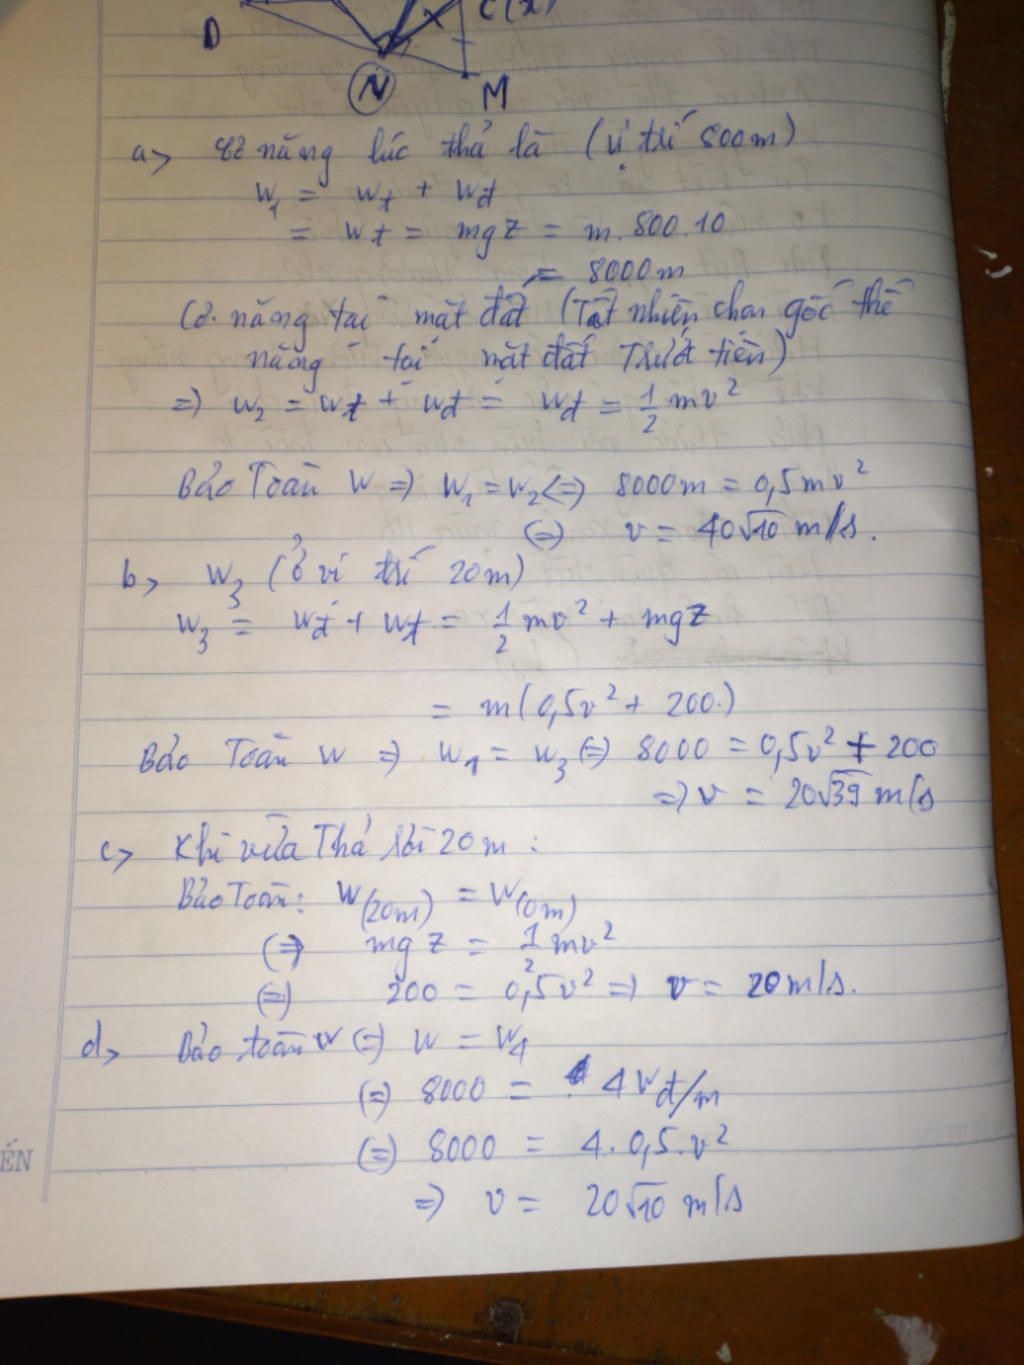 D
C(x)
N
M
a> Cơ năng lúc thả là (vị trí 800m)
W₁ = Wt + Wđ
= Wt = mgz = m.800.10
= 8000m
Cơ năng tại mặt đất (Tất nhiên chọn gốc thế
năng tại mặt đất trước tiên)
=> W₂ = Wt + Wđ = Wđ = 1/2 mv²
Bảo Toàn W => W₁ = W₂ <=> 8000m = 0,5mv²
<=> v = 40√10 m/s.
b> W₃ (ở vị trí 20m)
W₃ = Wđ + Wt = 1/2 mv² + mgz
= m(0,5v² + 200.)
Bảo Toàn W => W₁ = W₃ <=> 8000 = 0,5v² + 200
=> v = 20√39 m/s
c> Khi vừa Thả rơi 20m :
Bảo Toàn: W(20m) = W(0m)
<=> mgz = 1/2 mv²
<=> 200 = 0,5v² => v = 20m/s.
d> Bảo toàn W <=> W = W₄
<=> 8000 = 4Wđ/m
<=> 8000 = 4.0,5.v²
=> v = 20√10 m/s
ẾN